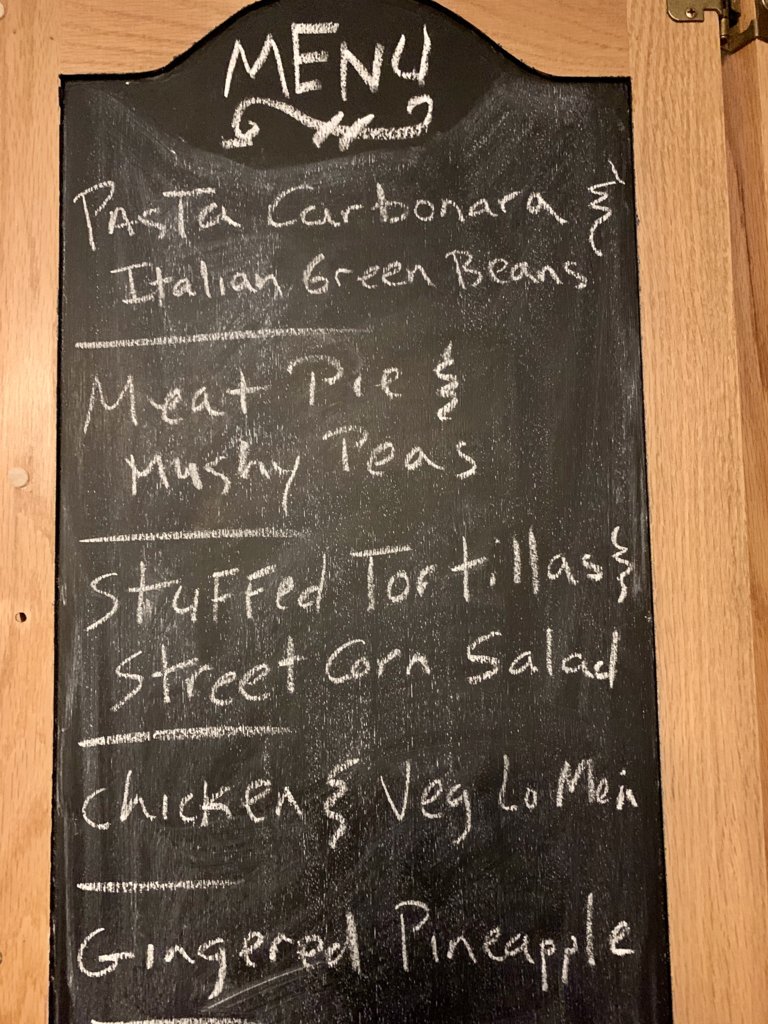 MENU
Pasta Carbonara &
Italian Green Beans
Meat Pie &
Mushy Peas
Stuffed Tortillas &
Street Corn Salad
Chicken & Veg Lo Mein
Gingered Pineapple